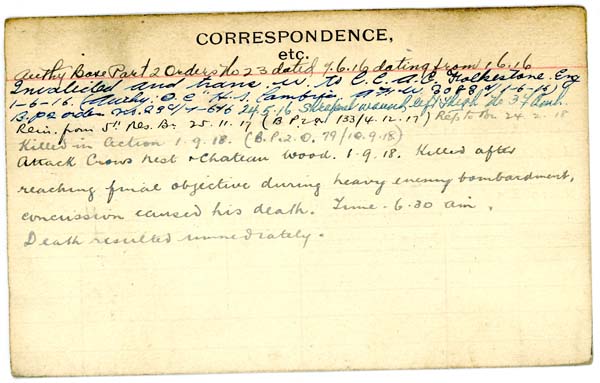 CORRESPONDENCE,
etc.
Authy Base Part 2 Orders No 23 dated 9.6.16 dating from 1.6.16
Invalided and trans. to C.C.A.C. Folkestone. Eng
1-6-16. (Authy: O.C. Cambridge 3088 1-6-16)
B. p 2 order no. 29 24.5.16 Shrapnel wound, left thigh
Rein. from 5th Res. Bn. 25.11.17 (B.P.2.O. 133/4.12.17) Rep to Bn 24.2.18
Killed in action 1.9.18. (B.P.2.O. 79/10.9.18)
Attack Crows Nest & Chateau Wood. 1.9.18. Killed after
reaching final objective during heavy enemy bombardment,
concussion caused his death. Time - 6.30 am.
Death resulted immediately.